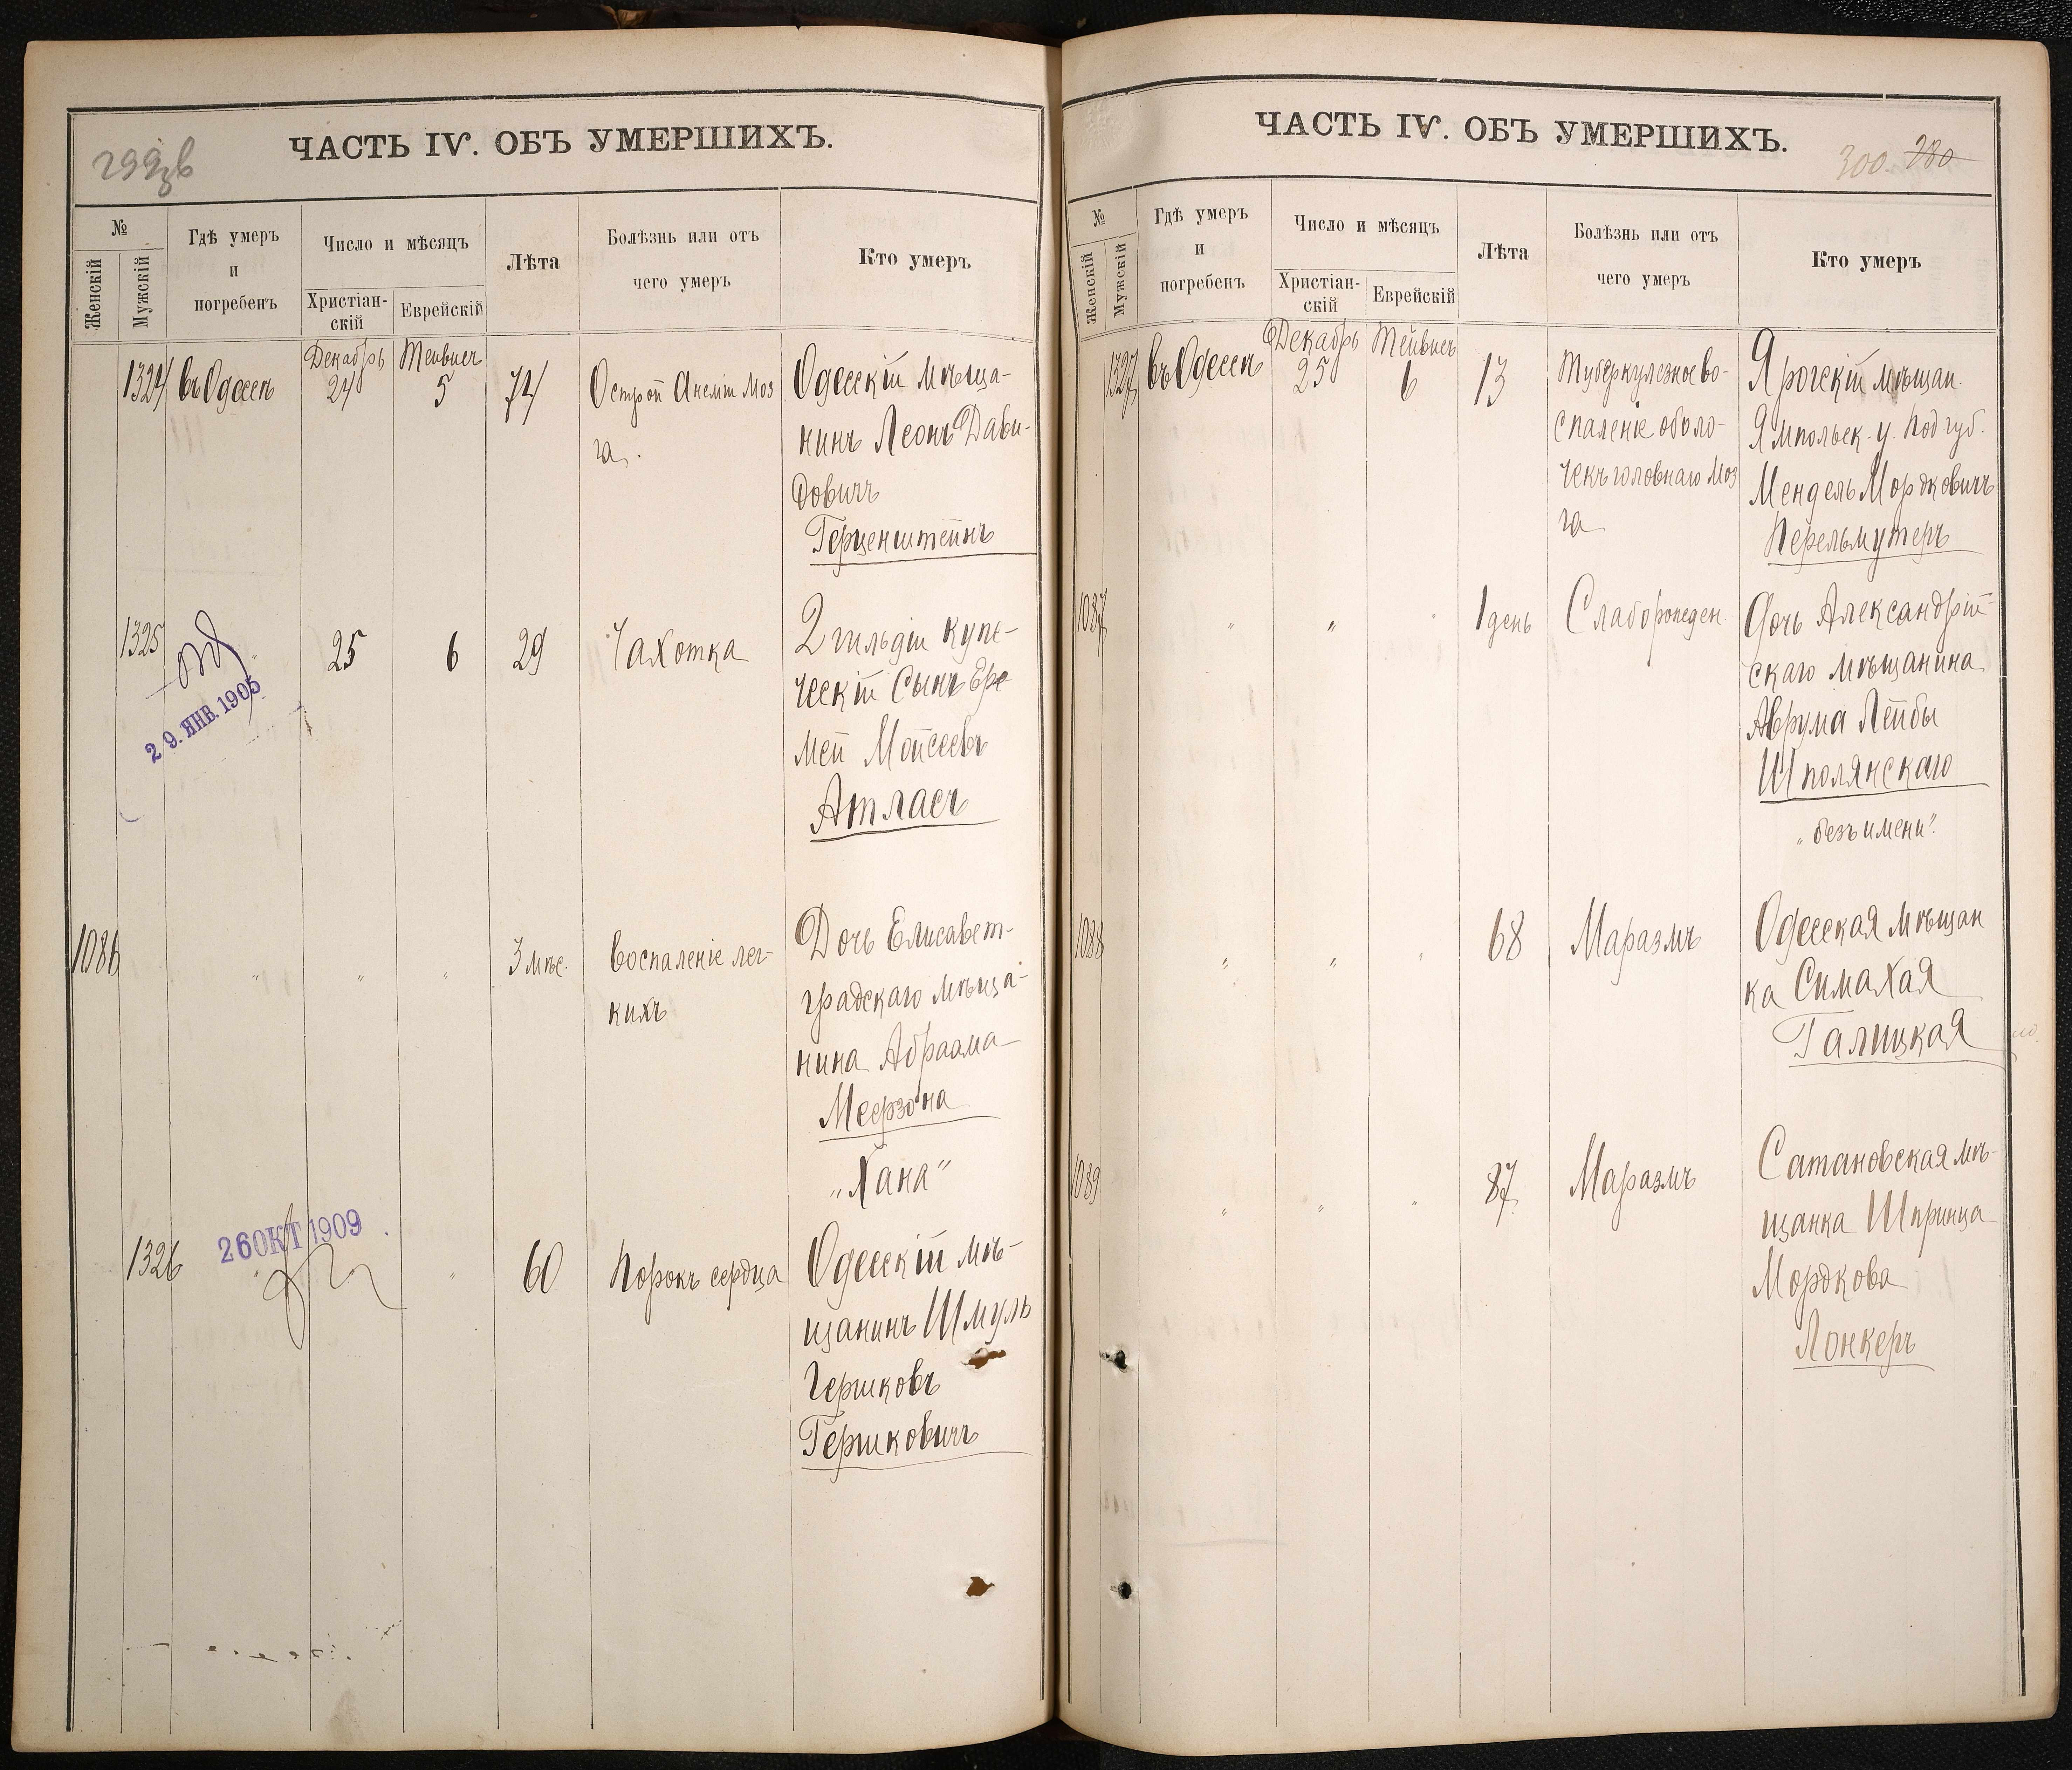 299зв
ЧАСТЬ IV. ОБЪ УМЕРШИХЪ.
№
Женскій
Мужскій
Гдѣ умеръ
и
погребенъ
Число и мѣсяцъ
Христіан-
скій
Еврейскій
Лѣта
Болѣзнь или отъ
чего умеръ
Кто умеръ
1324
въ Одессѣ
Декабрь
24
Тейвисъ
5
74
Острой Анеміи Моз
га.
Одесскій мѣща-
нинъ Леонъ Дави-
довичъ
Герценштейнъ
1325
29. ЯНВ. 1905
25
6
29
Чахотка
2 гильдіи купе-
ческій Сынъ Ере
мей Мойсеевъ
Атласъ
1086
"
"
"
3 мѣс.
Воспаленіе лег-
кихъ
Дочь Елисавет-
градскаго мѣща-
нина Абраама
Меерзона
„Хана"
1326
26 ОКТ 1909
"
60
Порокъ сердца
Одесскій мѣ-
щанинъ Шмуль
Гершковъ
Гершковичъ
ЧАСТЬ IV. ОБЪ УМЕРШИХЪ.
300 280
№
Женскій
Мужскій
Гдѣ умеръ
и
погребенъ
Число и мѣсяцъ
Христіан-
скій
Еврейскій
Лѣта
Болѣзнь или отъ
чего умеръ
Кто умеръ
1327
въ Одессѣ
Декабрь
25
Тейвисъ
6
13
Туберкулезное во-
спаленіе оболо-
чекъ головнаго Моз
га
Яроскій мѣщан.
Ямпольск. у. Под губ.
Мендель Мордковичъ
Перельмутеръ
1087
"
"
"
1 день
Слаборожден.
Дочь Александрій-
скаго мѣщанина
Аврума Лейбы
Шполянскаго
„безъ имени".
1088
"
"
"
68
Маразмъ
Одесская мѣщан
ка Сима Хая
Галицкая
1089
"
"
"
87
Маразмъ
Сатановская мѣ-
щанка Шпринца
Мордкова
Лонкеръ